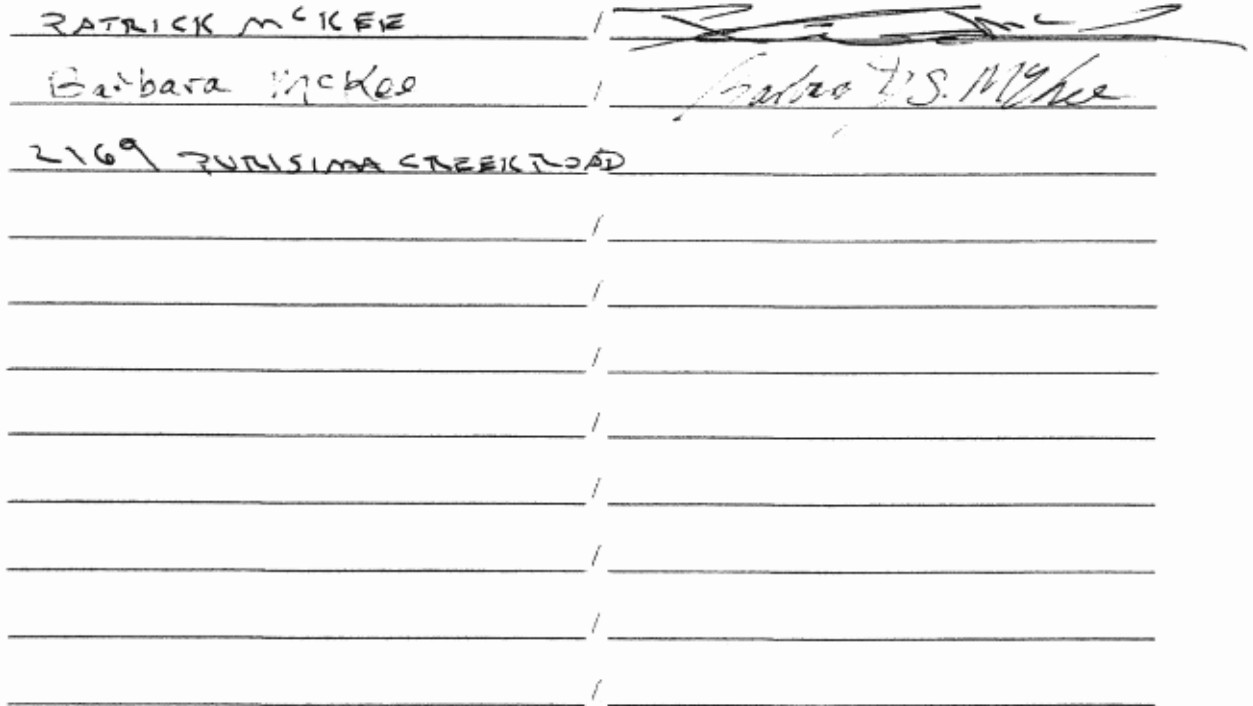 PATRICK McKEE /
Barbara McKee / Barbara S. McKee
2169 PURISIMA CREEK ROAD /
/
/
/
/
/
/
/
/